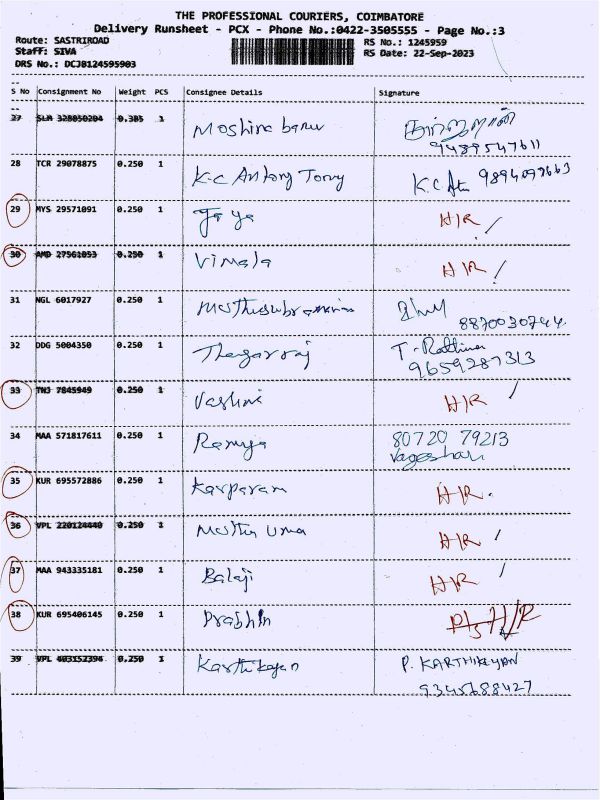 THE PROFESSIONAL COURIERS, COIMBATORE
Delivery Runsheet - PCX - Phone No.:0422-3505555 - Page No.:3
Route: SASTRIROAD RS No.: 1245959
Staff: SIVA RS Date: 22-Sep-2023
DRS No.: DCJB124595903
S No Consignment No Weight PCS Consignee Details Signature
27 SLM 328050204 0.385 1 Moshina banu
9489547611
28 TCR 29078875 0.250 1 K.C Antony Tony K.C
29 MYS 29571091 0.250 1 Jaya H/R
30 AMD 27561053 0.250 1 Vimala H/R
31 NGL 6017927 0.250 1
8870030744
32 DDG 5004350 0.250 1 Thangarraj T. Rathina
9659287313
33 TNJ 7845949 0.250 1 Vashini H/R
34 MAA 571817611 0.250 1 Ramya 80720 79213
Vageshan
35 KUR 695572886 0.250 1 Karparam H/R.
36 VPL 220124440 0.250 1 Muthu Uma H/R
37 MAA 943335181 0.250 1 Balaji H/R
38 KUR 695406145 0.250 1 Prabhu H/R
39 VPL 403152394 0.250 1 Karthikeyan P. KARTHIKEYAN
9345688427